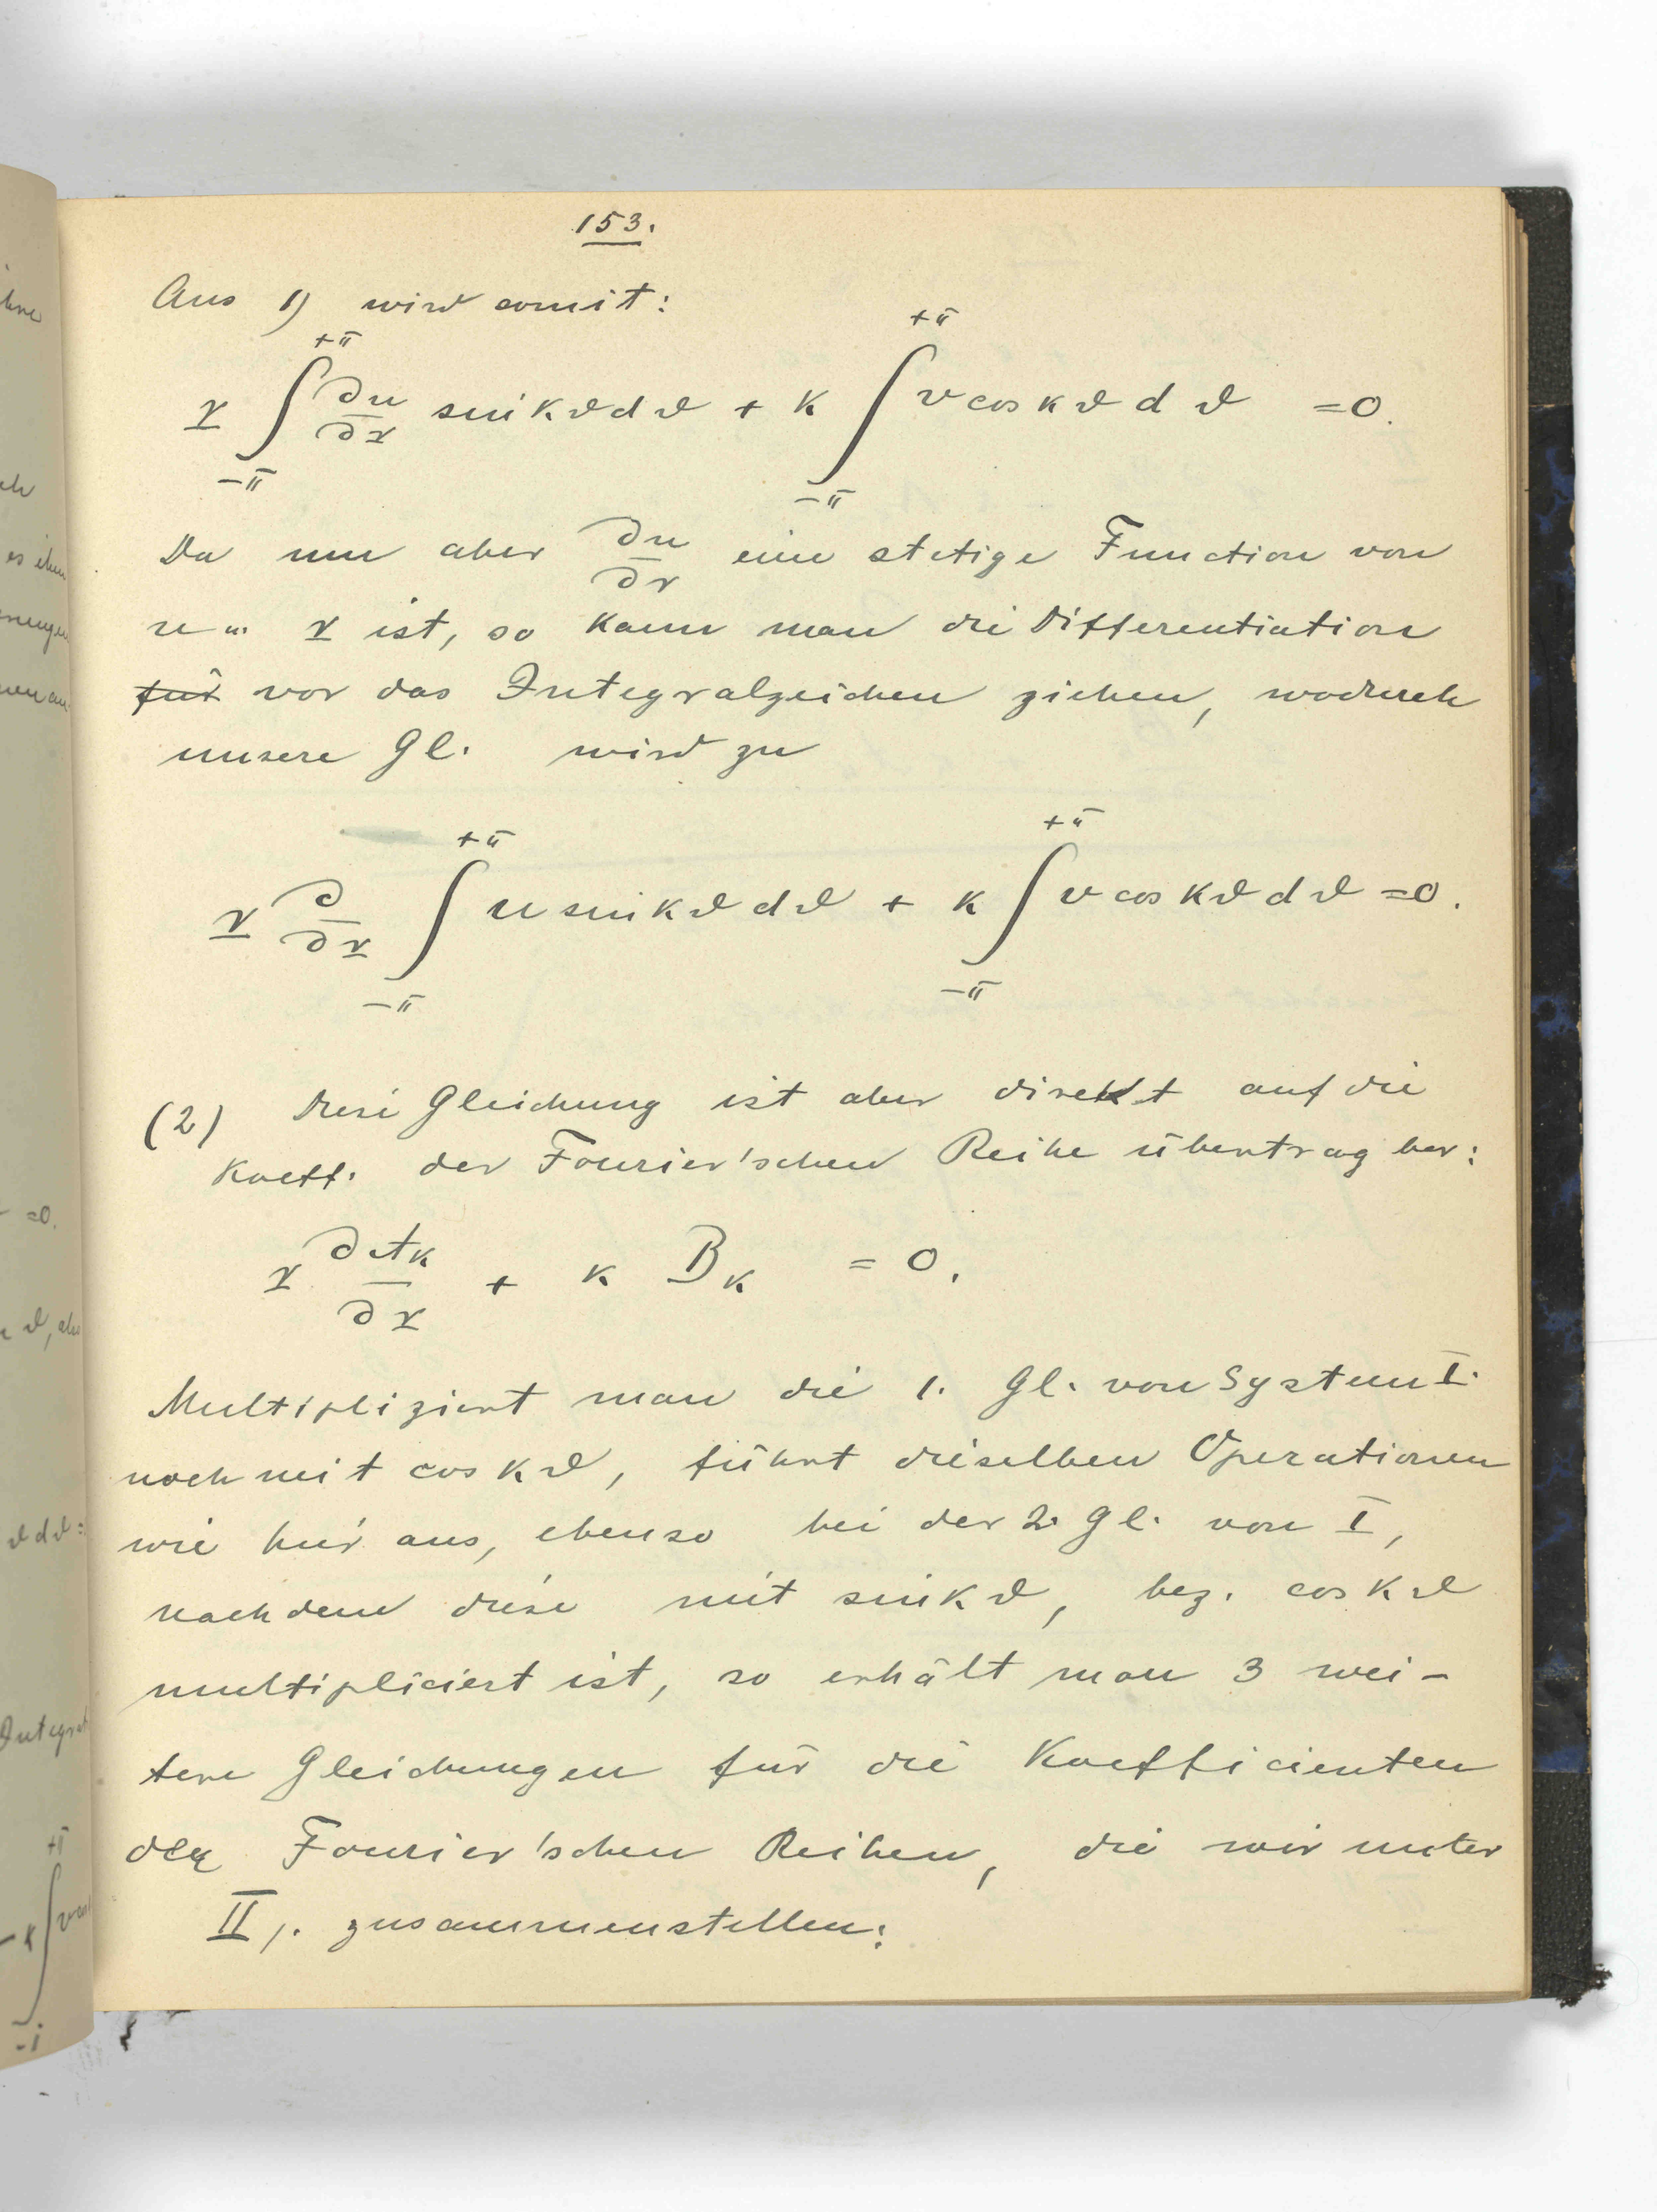 153.
Aus 1) wird somit:
r ∫_{-π}^{+π} ∂u/∂r sin kϑ dϑ + k ∫_{-π}^{+π} v cos kϑ dϑ = 0.
Da nun aber ∂u/∂r eine stetige Function von
u u. r ist, so kann man die Differentiation
für vor das Integralzeichen ziehen, wodurch
unsere Gl. wird zu
r ∂/∂r ∫_{-π}^{+π} u sin kϑ dϑ + k ∫_{-π}^{+π} v cos kϑ dϑ = 0.
(2) Diese Gleichung ist aber direkt auf die
Koeff. der Fourier'schen Reihe übertragbar:
r ∂A_k/∂r + k B_k = 0.
Multipliziert man die 1. Gl. von System I.
noch mit cos kϑ, führt dieselben Operationen
wie hier aus, ebenso bei der 2. Gl. von I,
nachdem diese mit sin kϑ, bez. cos kϑ
multipliciert ist, so erhält man 3 wei-
tere Gleichungen für die Koefficienten
der Fourier'schen Reihen, die wir unter
II). zusammenstellen: